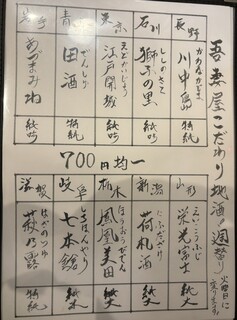 吾妻屋こだわり地酒(週替り)
火曜日に変ります。
長野
かわなかじま
川中島
特純
石川
ししのさと
獅子の里
純吟
東京
えどかいじょう
江戸開城
純吟
青森
でんしゅ
田酒
特純
岩手
あづまみね
純吟
700円均一
山形
えいこうふじ
栄光冨士
純大
新潟
にふだざけ
荷札酒
純大
栃木
ほうおうびでん
鳳凰美田
純吟
岐阜
しちほんやり
七本鎗
純米
滋賀
はぎのつゆ
萩乃露
特純